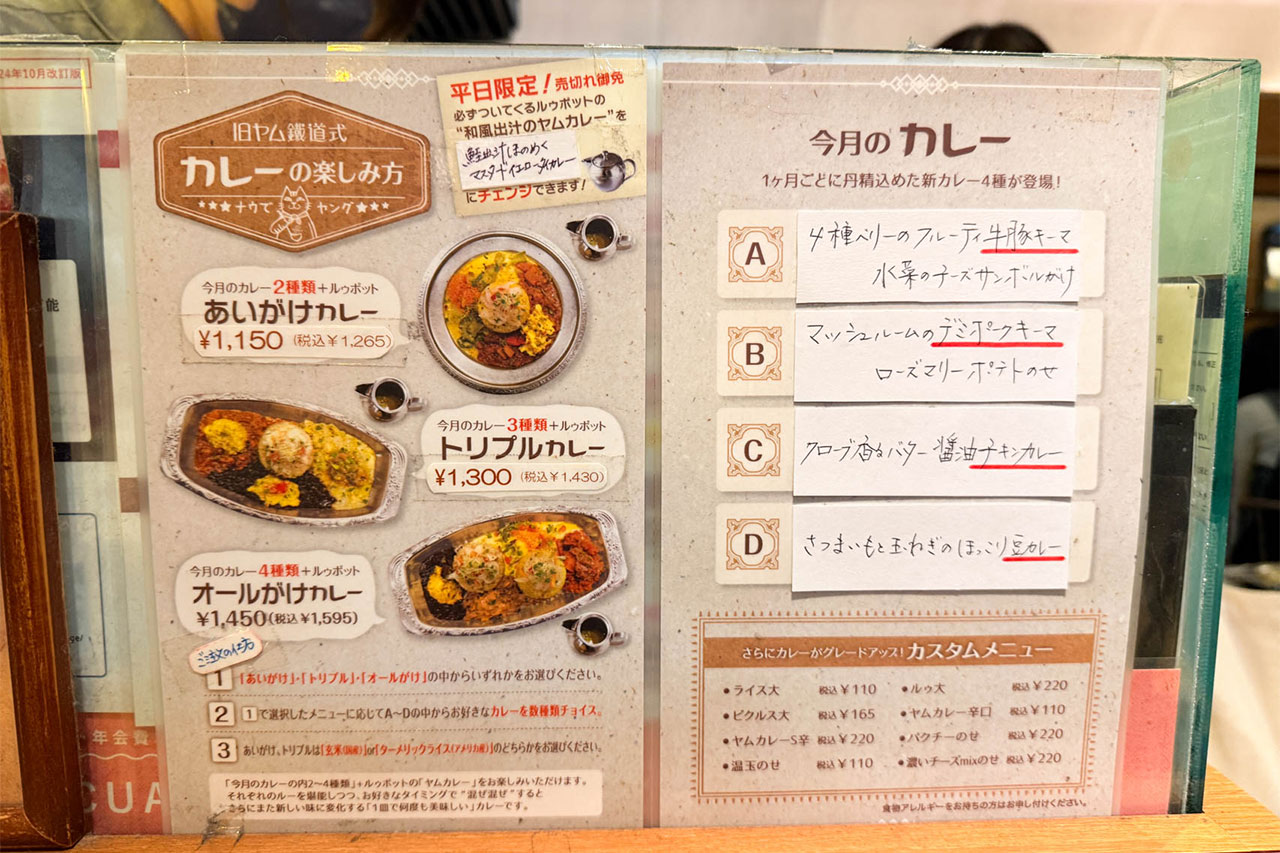 24年10月改訂版
旧ヤム鐵道式
カレーの楽しみ方
★★★ナウで ヤング★★★
平日限定！売切れ御免
必ずついてくるルゥポットの
“和風出汁のヤムカレー”を
鮭出汁ほのめく
マスタードイエローダルカレー
にチェンジできます！
今月のカレー2種類＋ルゥポット
あいがけカレー
¥1,150（税込¥1,265）
今月のカレー3種類＋ルゥポット
トリプルカレー
¥1,300（税込¥1,430）
今月のカレー4種類＋ルゥポット
オールがけカレー
¥1,450(税込¥1,595)
ご注文の仕方
1 「あいがけ」・「トリプル」・「オールがけ」の中からいずれかをお選びください。
2 1で選択したメニューに応じてA～Dの中からお好きなカレーを数種類チョイス。
3 あいがけ、トリプルは「玄米(国産)」or「ターメリックライス(アメリカ産)」のどちらかをお選びください。
「今月のカレーの内2～4種類」＋ルゥポットの「ヤムカレー」をお楽しみいただけます。
それぞれのルーを堪能しつつ、お好きなタイミングで“混ぜ混ぜ”すると
さらにまた新しい味に変化する「1皿で何度も美味しい」カレーです。
今月のカレー
1ヶ月ごとに丹精込めた新カレー4種が登場！
A 4種ベリーのフルーティ牛豚キーマ
水菜のチーズサンボルがけ
B マッシュルームのデミポークキーマ
ローズマリーポテトのせ
C クローブ香るバター醤油チキンカレー
D さつまいもと玉ねぎのほっこり豆カレー
さらにカレーがグレードアップ！カスタムメニュー
●ライス大 税込¥110 ●ルゥ大 税込¥220
●ピクルス大 税込¥165 ●ヤムカレー辛口 税込¥110
●ヤムカレーS辛 税込¥220 ●パクチーのせ 税込¥220
●温玉のせ 税込¥110 ●濃いチーズmixのせ 税込¥220
食物アレルギーをお持ちの方はお申し付けください。
能
年会費
CUA